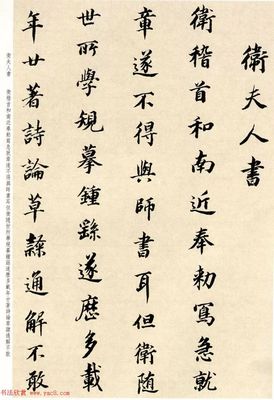 衛夫人書
衛稽首和南近奉勅寫急就
章遂不得與師書耳但衛随
世所學規摹鍾繇遂歷多載
年廿著詩論草隸通解不敢
衛夫人書 衛稽首和南近奉勅寫急就章遂不得與師書耳但衛隨世所學規摹鍾繇遂歷多載年廿著詩論草隸通解不敢